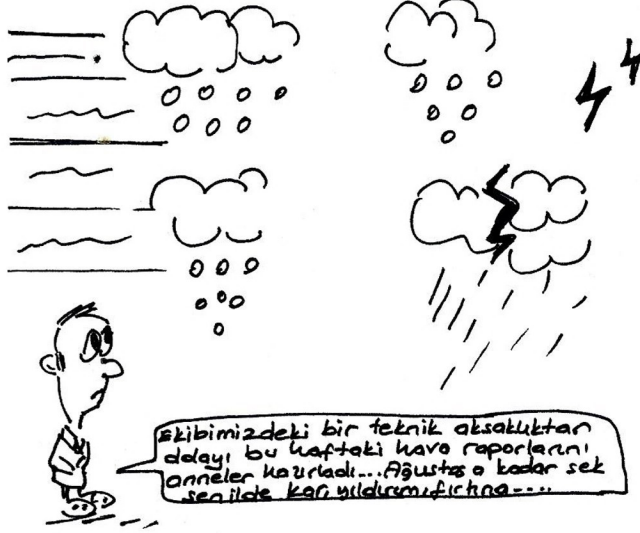 Ekibimizdeki bir teknik aksaklıktan
dolayı bu haftaki hava raporlarını
anneler hazırladı...Ağustos a kadar sek
sen ilde kar, yıldırım, fırtına....